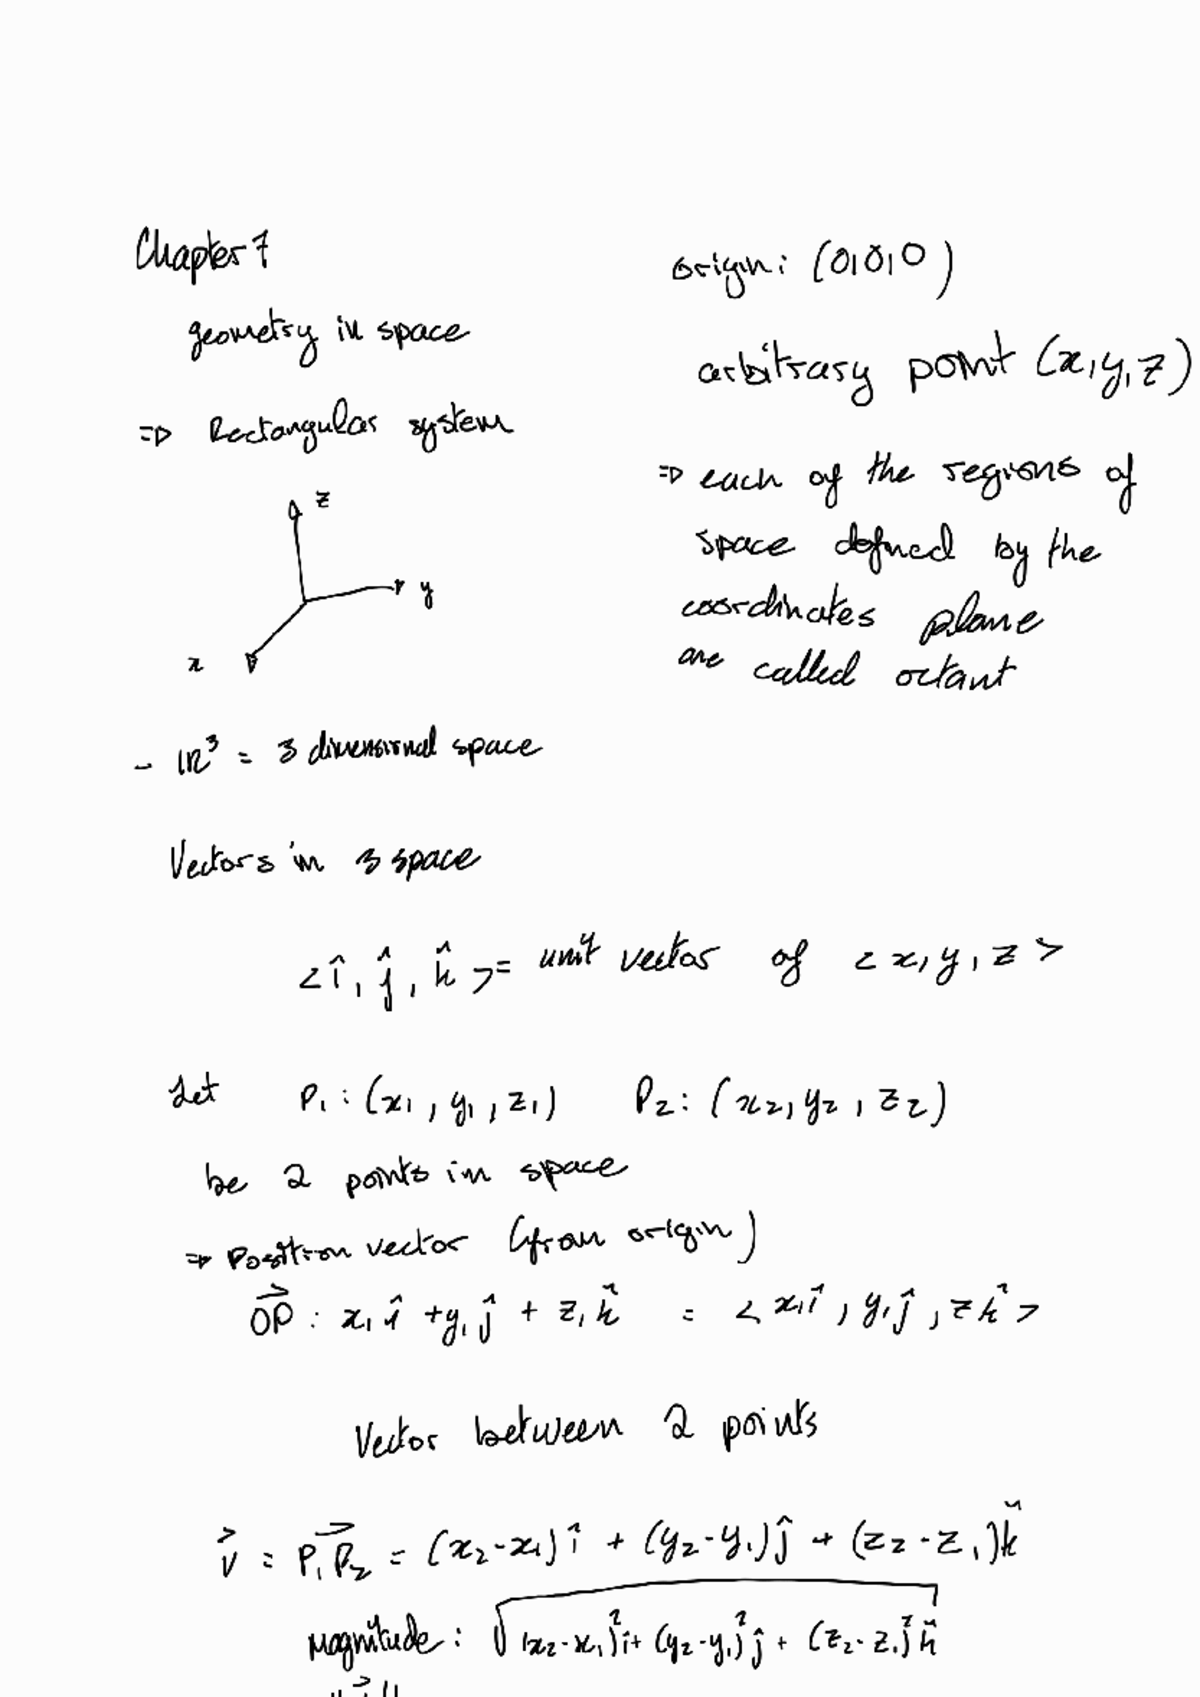 Chapter 7
geometry in space
⇒ Rectangular system
z
y
x
- IR³ = 3 dimensional space
origin: (0,0,0)
arbitrary point (x,y,z)
⇒ each of the regions of
space defined by the
coordinates plane
are called octant
Vectors in 3 space
<î, ĵ, k̂> = unit vector of <x, y, z>
Let P₁: (x₁, y₁, z₁) P₂: (x₂, y₂, z₂)
be 2 points in space
⇒ Position vector (from origin)
OP⃗ : x₁ î + y₁ ĵ + z₁ k̂ = < x₁î, y₁ĵ, zk̂ >
Vector between 2 points
v⃗ = P₁P₂⃗ = (x₂-x₁)î + (y₂-y₁)ĵ + (z₂-z₁)k̂
Magnitude: √(x₂-x₁)²î + (y₂-y₁)²ĵ + (z₂-z₁)²k̂